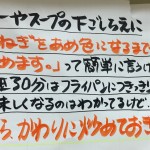 ーやスープの下ごしらえに
ねぎをあめ色になるまで
めます。」って簡単に言うけ
30分はフライパンにつきっき
味しくなるのはわかってるけど
ら、かわりに炒めておき